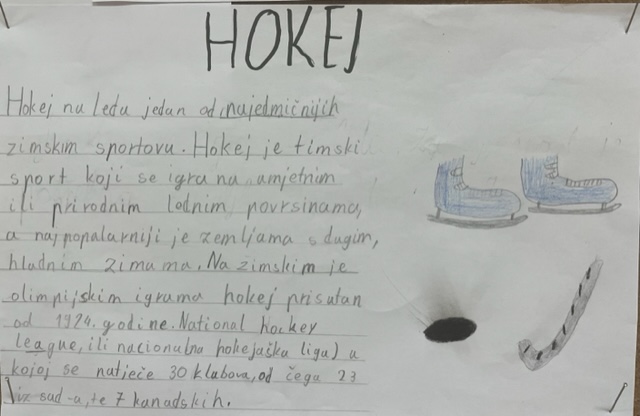 HOKEJ
Hokej na ledu jedan od najedmičnijih
zimskim sportova. Hokej je timski
sport koji se igra na umjetnim
ili prirodnim lednim povrsinama,
a najpopalarniji je zemljama s dugim,
hladnim zimama. Na zimskim je
olimpijskim igrama hokej prisutan
od 1924. godine. National hockey
league, ili nacionalna hokejaška liga) u
kojoj se natječe 30 klubova, od čega 23
iz sad-a, te 7 kanadskih.